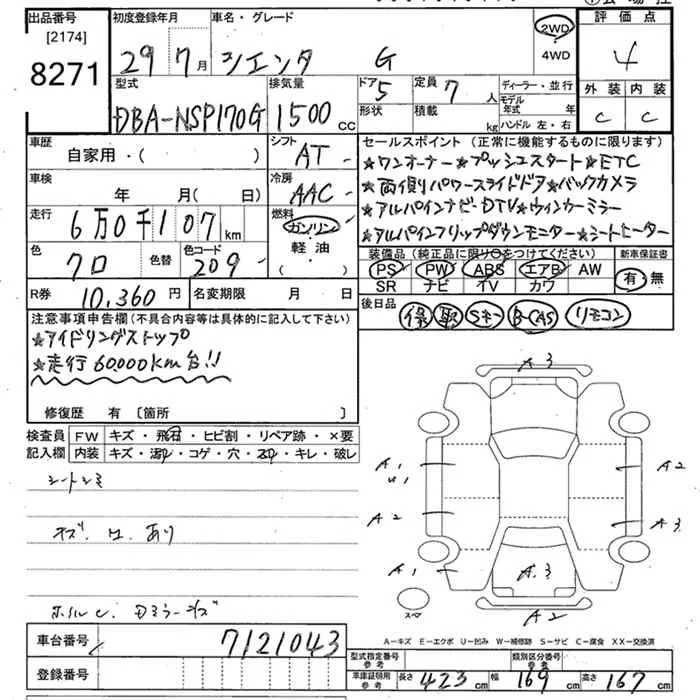 出品番号
[2174]
8271
初度登録年月
29年 7月
車名・グレード
シエンタ G
2WD
・
4WD
評価点
4
外装 内装
C C
型式
DBA-NSP170G
排気量
1500 CC
ドア 5
形状
定員 7 人
積載 kg
ディーラー・並行
モデル年式 年
ハンドル 左・右
車歴
自家用・( )
シフト
AT
車検
年 月( 日)
冷房
AAC
走行
6万0千107 km
燃料
ガソリン
・
軽・油
・( )
色
クロ
色替
色コード
209
R券 10,360 円
名変期限 月 日
セールスポイント (正常に機能するものに限ります)
★ワンオーナー★プッシュスタート★ETC
★両側パワースライドドア★バックカメラ
★アルパインナビ・DTV★ウィンカーミラー
★アルパインフリップダウンモニター★シートヒーター
装備品 (純正品に限り○をつけてください)
新車保証書
PS PW ABS エアB AW
SR ナビ TV カワ
有・無
後日品
保 取 Sキー B-CAS リモコン
注意事項申告欄(不具合内容等は具体的に記入して下さい)
★アイドリングストップ
★走行60,000km台!!
修復歴 有 〔箇所 〕
検査員記入欄
FW キズ・飛石・ヒビ割・リペア跡・×要
内装 キズ・汚れ・コゲ・穴・スレ・キレ・破レ
シートシミ
キズ.U.あり
ホイルC. Dミラーキズ
A3
A1
U1
A2
A2
A3
A1
A3
A2
スペ
A－キズ E－エクボ U－凹み W－補修跡 S－サビ C－腐食 XX－交換済
車台番号 7121043
登録番号
型式指定番号
参考
類別区分番号
参考
車庫証明用
参考
長さ 423 cm 幅 169 cm 高さ 167 cm